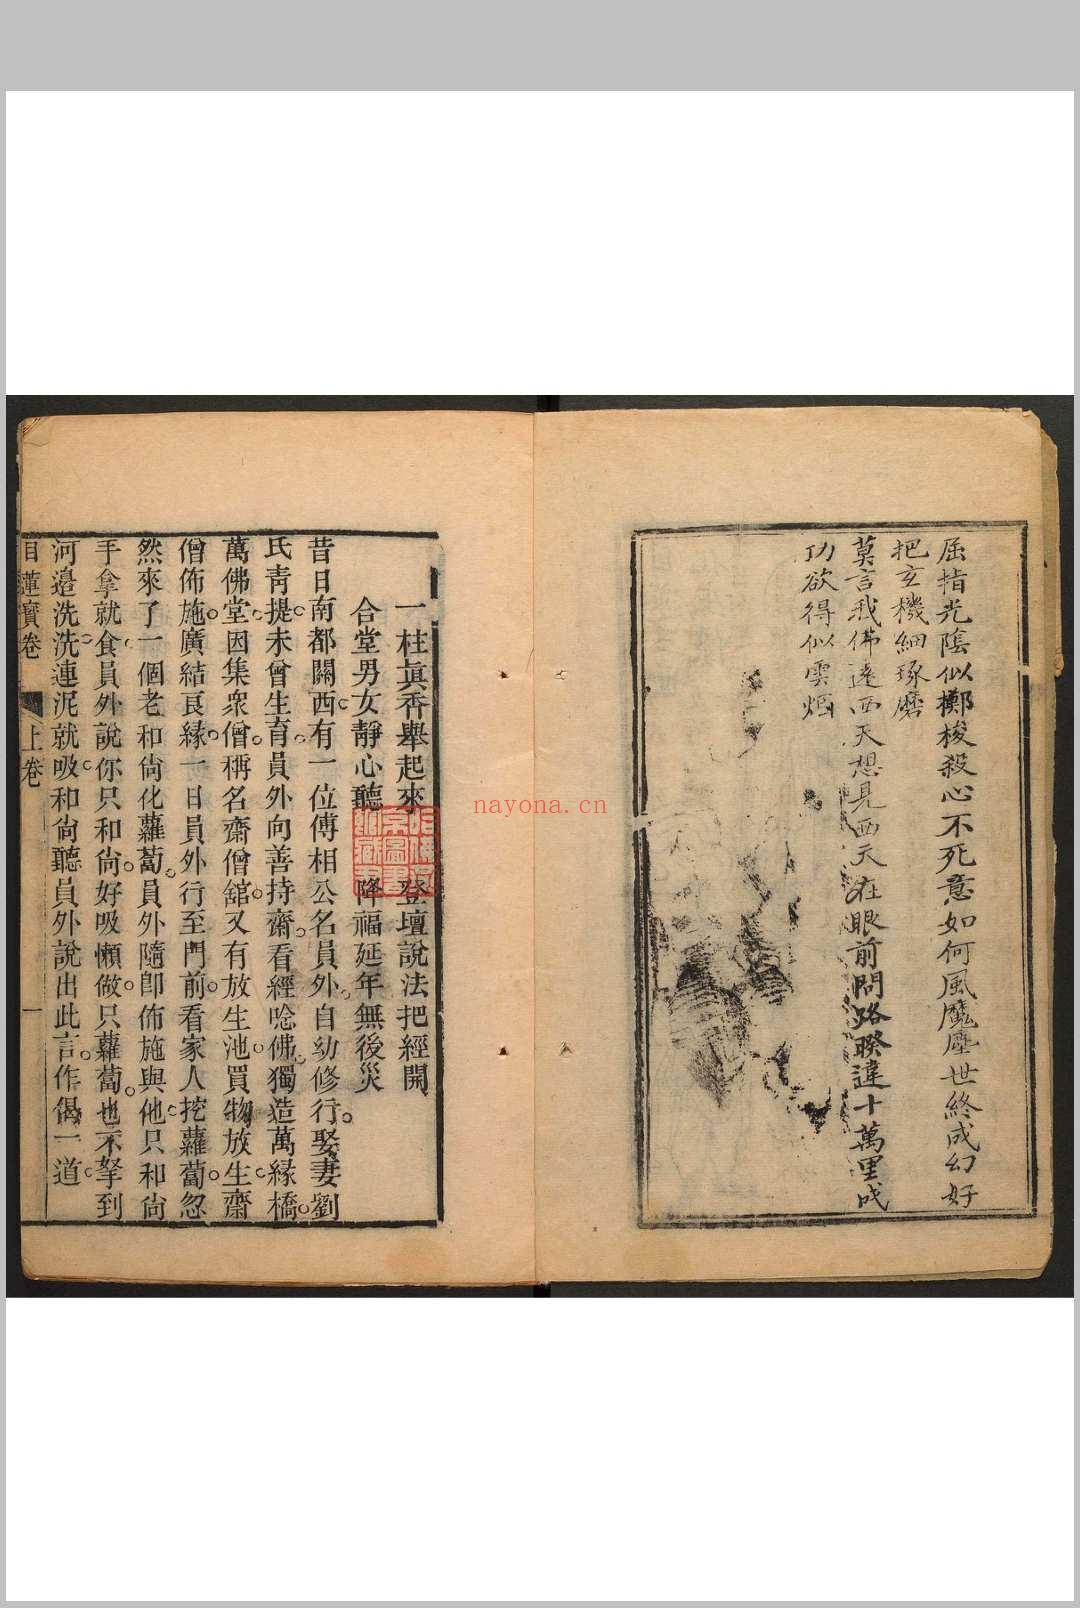 屈指光陰似梛梭殺心不死意如何風魔塵世終成幻好
把玄機細琢磨
莫言我佛遠西天想見西天在眼前問路暌違十萬里成
功欲得似雲烟
一柱眞香舉起來 登壇說法把經開
合堂男女靜心聽 降福延年無後災
昔日南都關西有一位傅相公名員外自幼修行娶妻劉
氏青提未曾生育員外向善持齋看經唸佛獨造萬緣橋
萬佛堂因集衆僧稱名齋僧舘又有放生池買物放生齋
僧佈施廣結良緣一日員外行至門前看家人挖蘿蔔忽
然來了一個老和尙化蘿蔔員外隨卽佈施與他只和尙
手拿就食員外說你只和尙好吸懶做只蘿蔔也不拏到
河邉洗洗連泥就吸和尙聽員外說出此言作偈一道
目蓮寶卷 上卷 一
nayona.cn